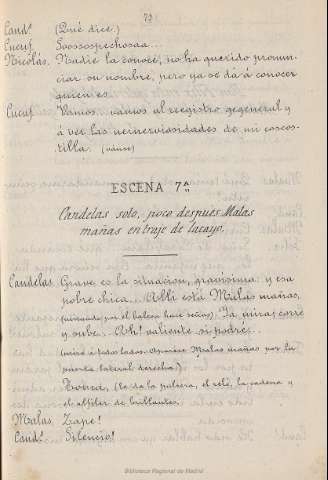 73.
Candˢ (Qué dice.)
Cucuf. Soossospechosaa...
Nicolás. Nadie la conoce, no ha querido pronun-
ciar su nombre, pero ya se dá á conocer
quien es.
Cucuf. Vamos... vámos al registro gegeneral y
á ver las neinerviosidades de mi coscos-
tilla. (vánse)
ESCENA 7ª
Candelas solo, poco después Malas
mañas en traje de lacayo.
Candelas. Grave es la situacion, gravísima: y esa
pobre chica... Allí está Malas mañas,
(mirando por el balcon hace señas) Ya mira; corre
y sube. Ah! valiente si podré...
(mira á todos lados. Aparece Malas mañas por la
puerta lateral derecha)
(le da la palera, el reló, la cadena y
el alfiler de brillantes.
Malas. Zape!
Candˢ Silencio!
Biblioteca Regional de Madrid